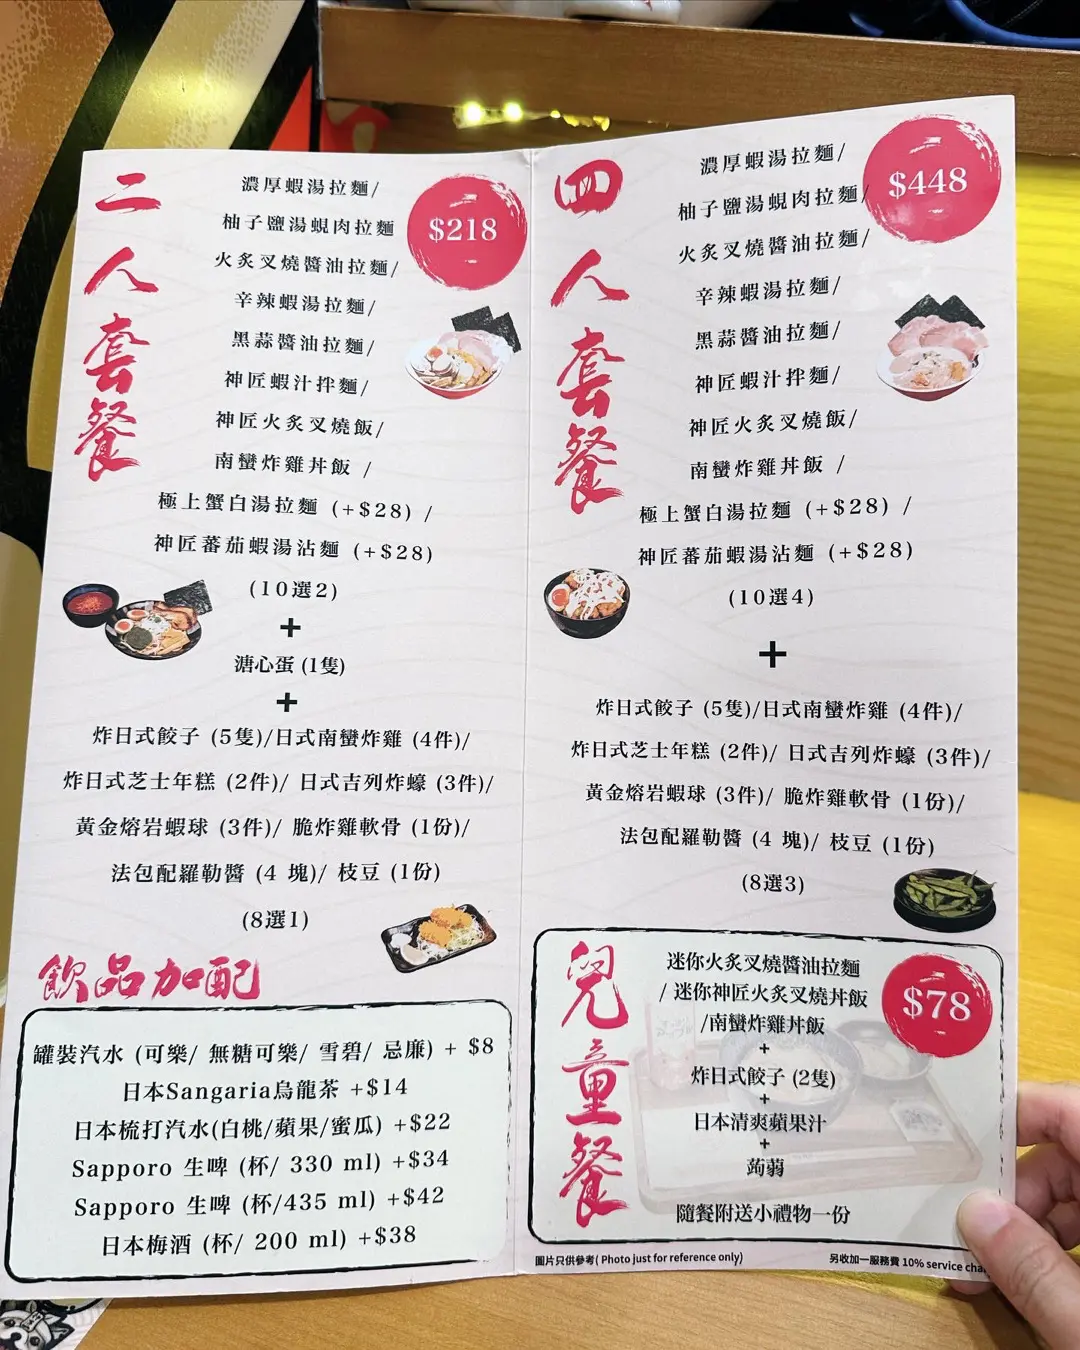 二人套餐
$218
濃厚蝦湯拉麵/
柚子鹽湯蜆肉拉麵
火炙叉燒醬油拉麵/
辛辣蝦湯拉麵/
黑蒜醬油拉麵/
神匠蝦汁拌麵/
神匠火炙叉燒飯/
南蠻炸雞丼飯 /
極上蟹白湯拉麵 (+$28) /
神匠蕃茄蝦湯沾麵 (+$28)
(10選2)
+
溏心蛋 (1隻)
+
炸日式餃子 (5隻)/日式南蠻炸雞 (4件)/
炸日式芝士年糕 (2件)/ 日式吉列炸蠔 (3件)/
黃金熔岩蝦球 (3件)/ 脆炸雞軟骨 (1份)/
法包配羅勒醬 (4 塊)/ 枝豆 (1份)
(8選1)
飲品加配
罐裝汽水 (可樂/ 無糖可樂/ 雪碧/ 忌廉) + $8
日本Sangaria烏龍茶 +$14
日本梳打汽水(白桃/蘋果/蜜瓜) +$22
Sapporo 生啤 (杯/ 330 ml) +$34
Sapporo 生啤 (杯/435 ml) +$42
日本梅酒 (杯/ 200 ml) +$38
四人套餐
$448
濃厚蝦湯拉麵/
柚子鹽湯蜆肉拉麵/
火炙叉燒醬油拉麵/
辛辣蝦湯拉麵/
黑蒜醬油拉麵/
神匠蝦汁拌麵/
神匠火炙叉燒飯/
南蠻炸雞丼飯 /
極上蟹白湯拉麵 (+$28) /
神匠蕃茄蝦湯沾麵 (+$28)
(10選4)
+
炸日式餃子 (5隻)/日式南蠻炸雞 (4件)/
炸日式芝士年糕 (2件)/ 日式吉列炸蠔 (3件)/
黃金熔岩蝦球 (3件)/ 脆炸雞軟骨 (1份)/
法包配羅勒醬 (4 塊)/ 枝豆 (1份)
(8選3)
兒童餐
$78
迷你火炙叉燒醬油拉麵
/ 迷你神匠火炙叉燒丼飯
/南蠻炸雞丼飯
+
炸日式餃子 (2隻)
+
日本清爽蘋果汁
+
蒟蒻
隨餐附送小禮物一份
圖片只供參考( Photo just for reference only)
另收加一服務費 10% service